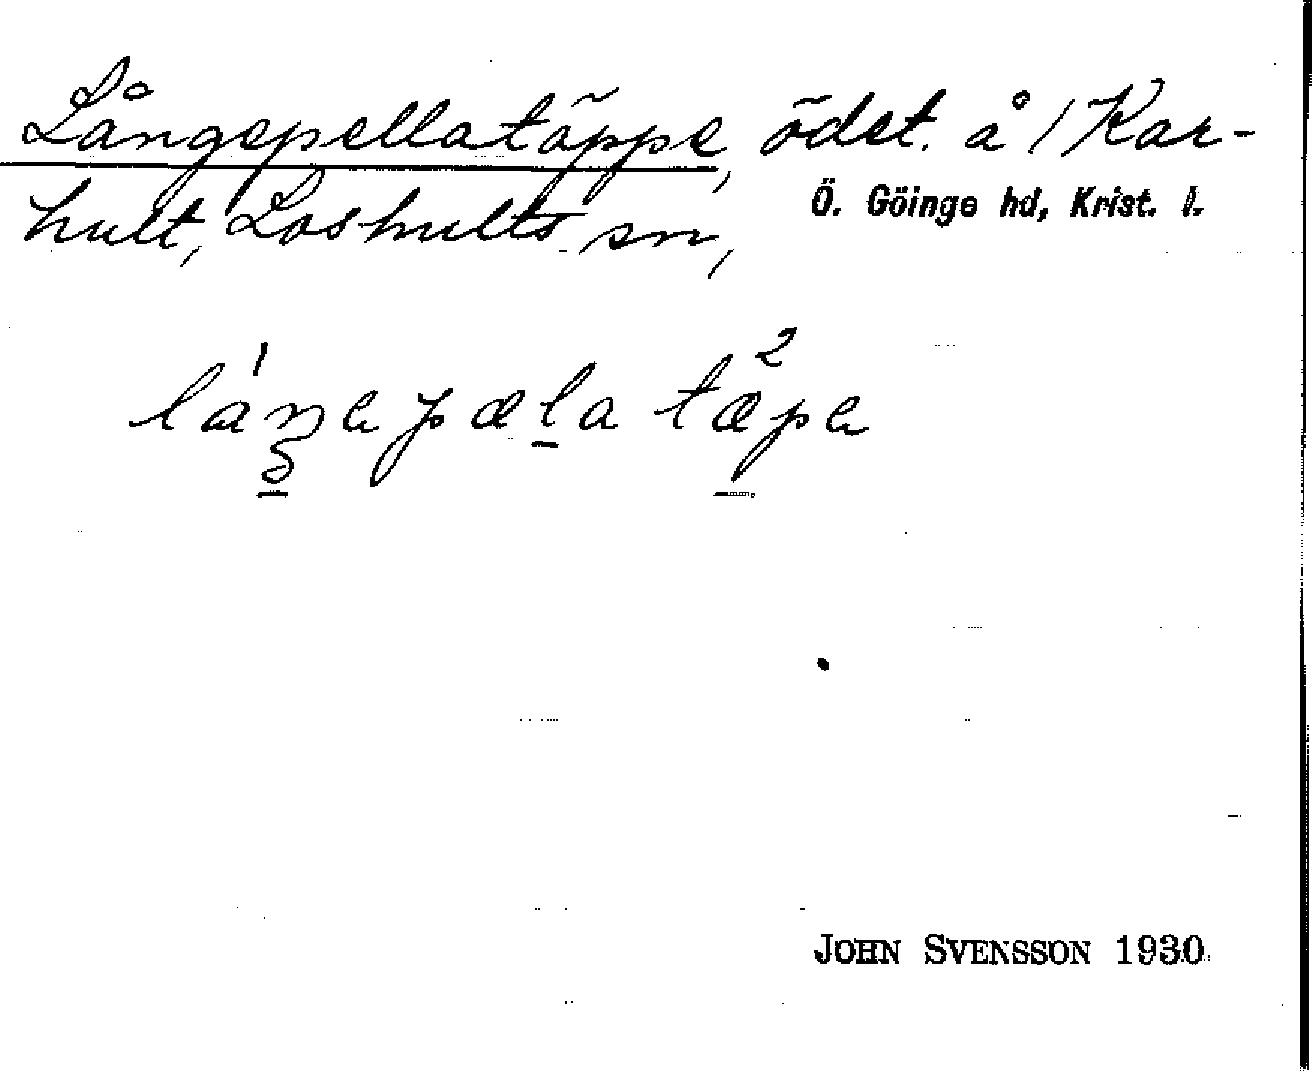 Långepellatäppe, ödet. å 1 Kar-
hult, Loshults sn,
Ö. Göinge hd, Krist. l.
JOHN SVENSSON 1930